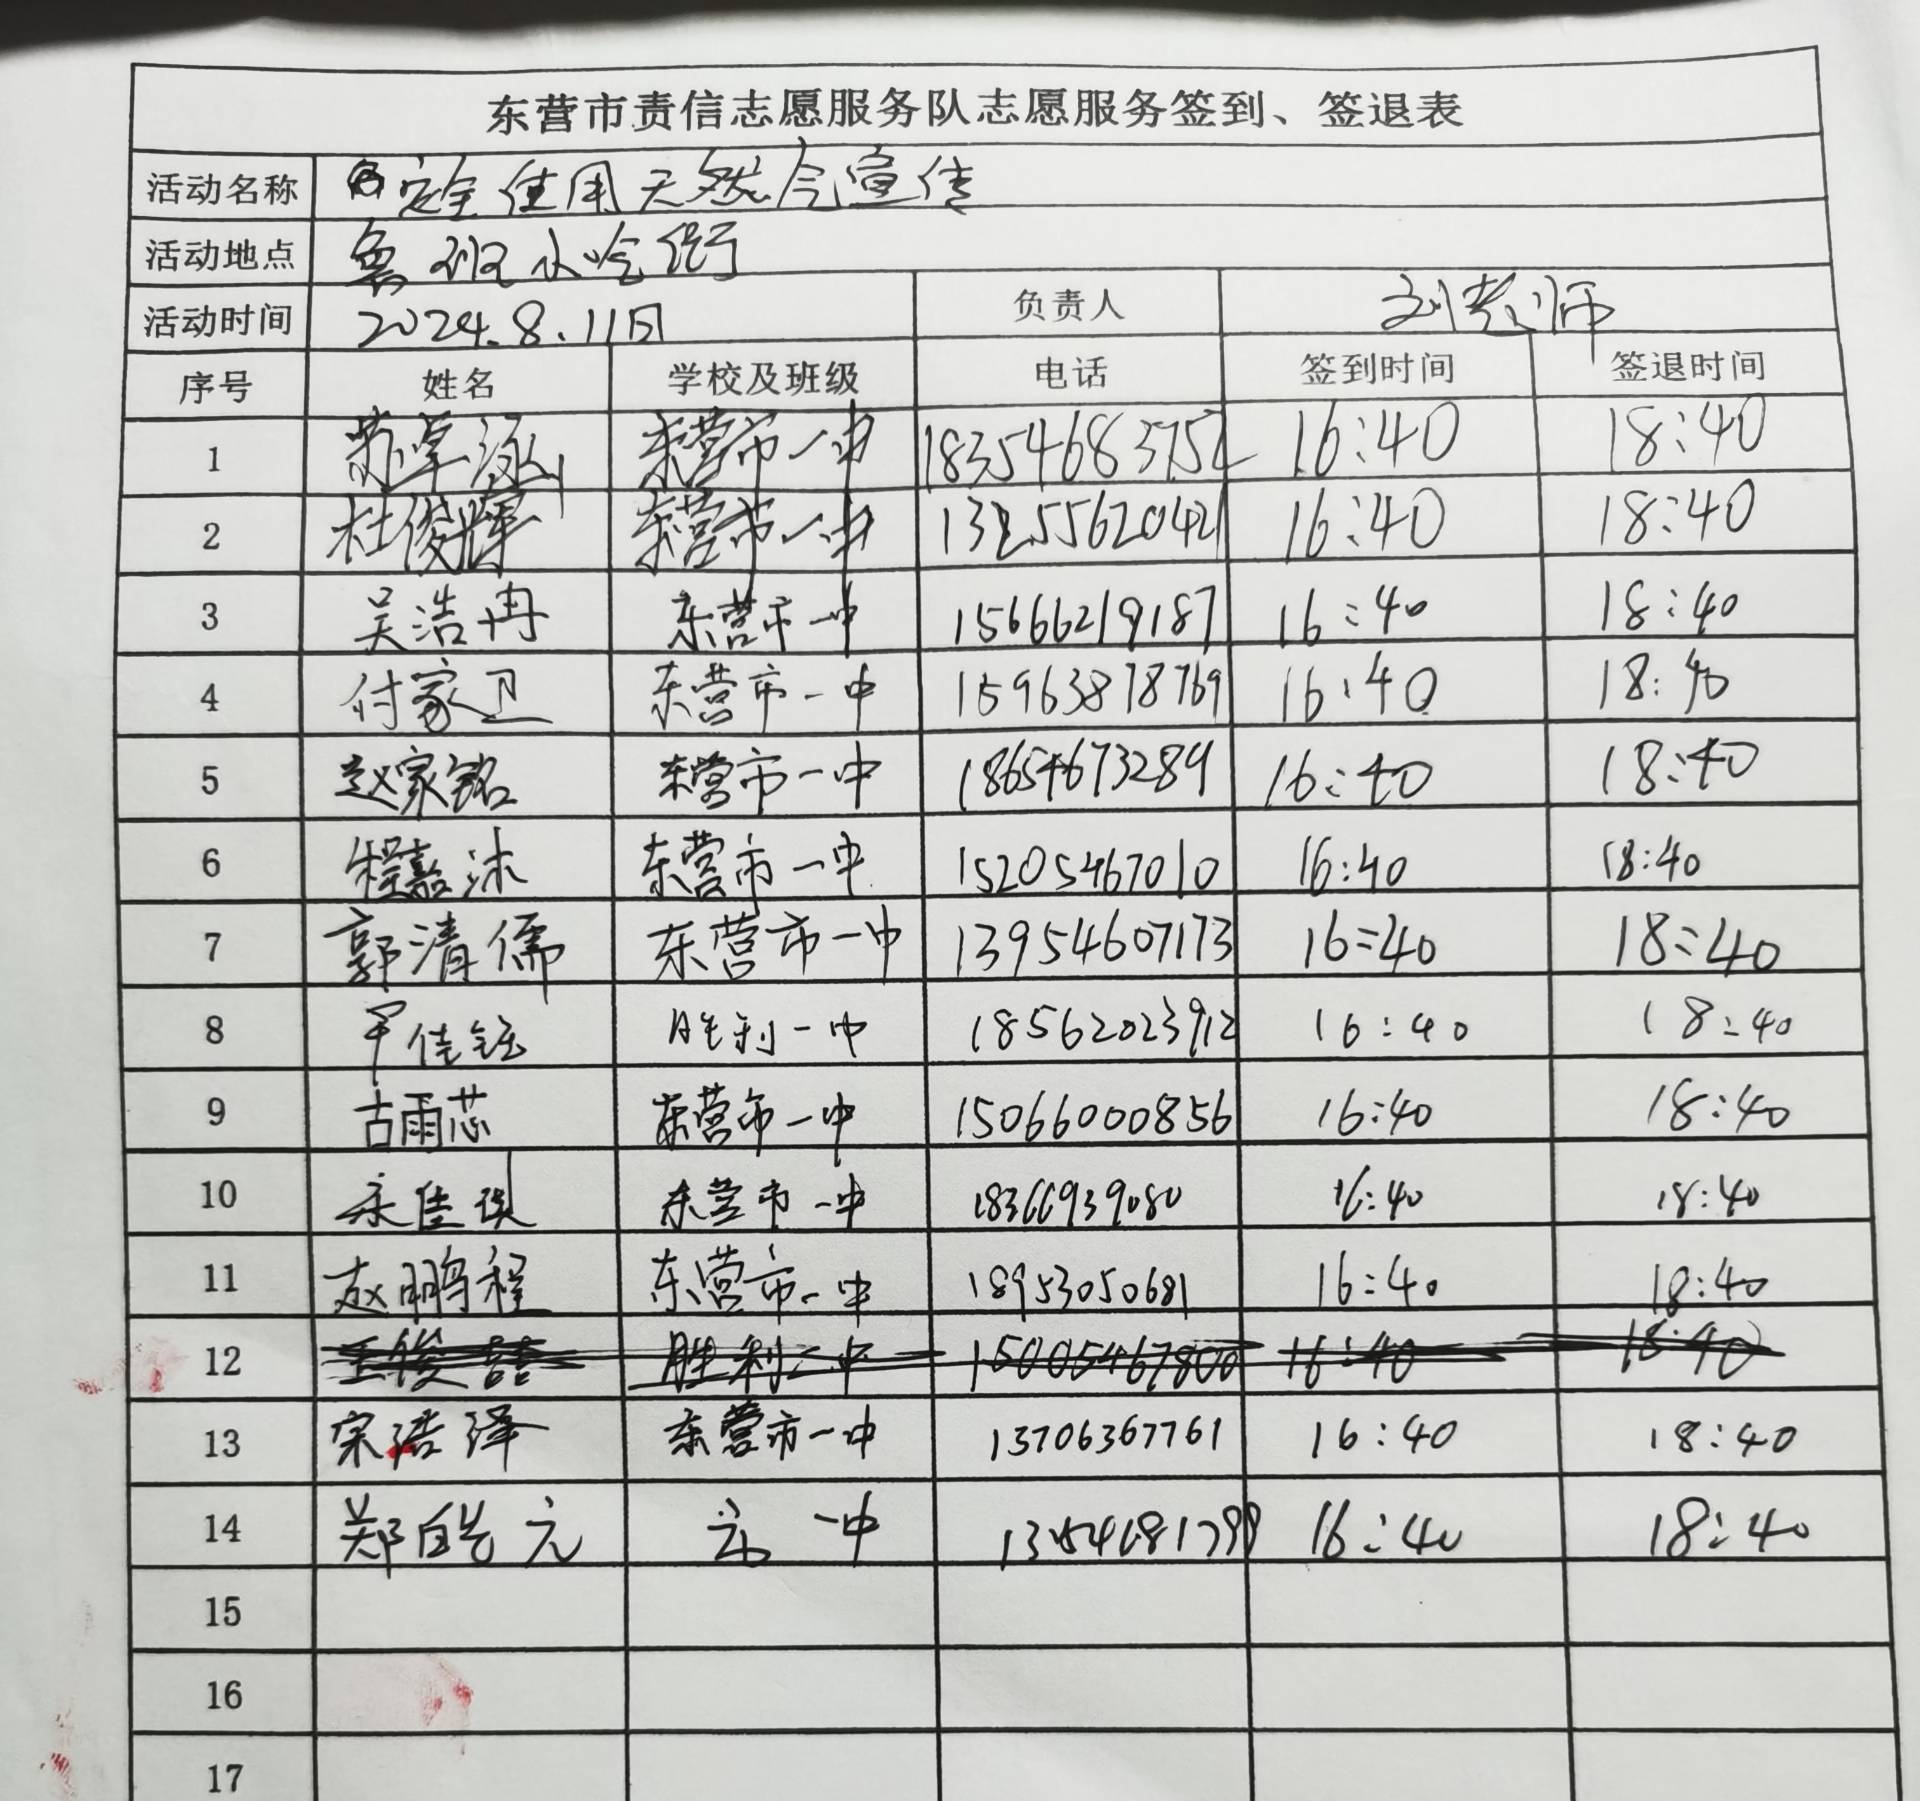 东营市责信志愿服务队志愿服务签到、签退表
活动名称 安全使用天然气宣传
活动地点 鲁班小吃街
活动时间 2024.8.11日 负责人 刘老师
序号 姓名 学校及班级 电话 签到时间 签退时间
1 东营市一中 18354683752 16:40 18:40
2 杜俊辉 东营市一中 13255620421 16:40 18:40
3 吴浩冉 东营市一中 15666219187 16:40 18:40
4 付家卫 东营市一中 15963878769 16:40 18:40
5 赵家铭 东营市一中 18654673289 16:40 18:40
6 程嘉沐 东营市一中 15205467010 16:40 18:40
7 郭清儒 东营市一中 13954607173 16:40 18:40
8 胜利一中 18562023912 16:40 18:40
9 古雨芯 东营市一中 15066000856 16:40 18:40
10 东营市一中 18366939080 16:40 18:40
11 赵鹏程 东营市一中 18953050681 16:40 18:40
12 王俊喆 胜利二中 15005467800 16:40 18:40
13 宋浩泽 东营市一中 13706367761 16:40 18:40
14 郑皓元 一中 16:40 18:40
15
16
17